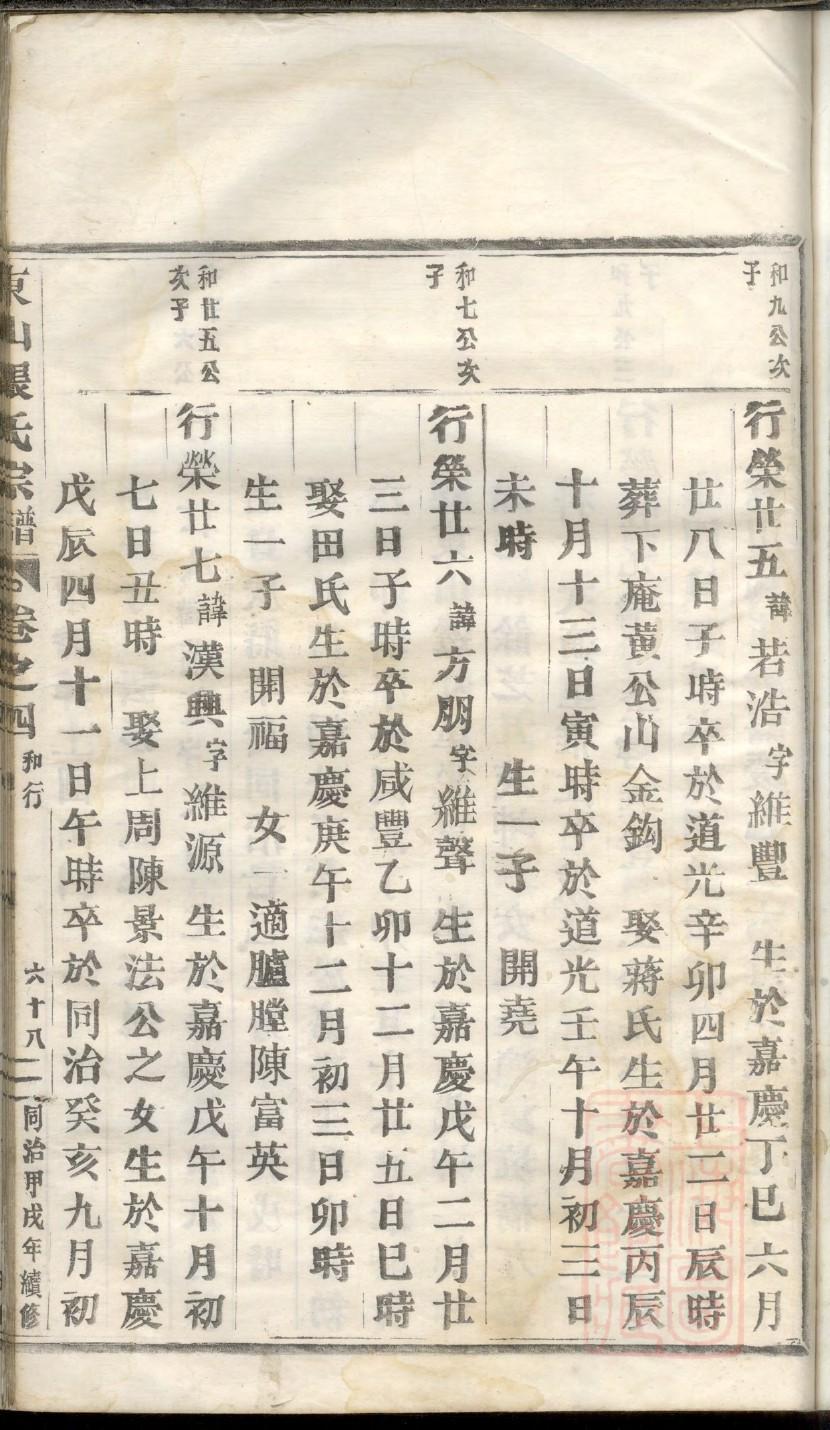 和九公次
子
行榮廿五諱若浩字維豐 生於嘉慶丁巳六月
廿八日子時卒於道光辛卯四月廿二日辰時
葬下庵黃公山金鈎 娶蔣氏生於嘉慶丙辰
十月十三日寅時卒於道光壬午十月初三日
未時 生一子 開堯
和七公次
子
行榮廿六諱方朋字維聲 生於嘉慶戊午二月廿
三日子時卒於咸豐乙卯十二月廿五日巳時
娶田氏生於嘉慶庚午十二月初三日卯時
生一子 開福 女一適臚膛陳富英
和廿五公
次子
行榮廿七諱漢興字維源 生於嘉慶戊午十月初
七日丑時 娶上周陳景法公之女生於嘉慶
戊辰四月十一日午時卒於同治癸亥九月初
東山張氏宗譜 卷之四 和行 六十八 同治甲戌年續修